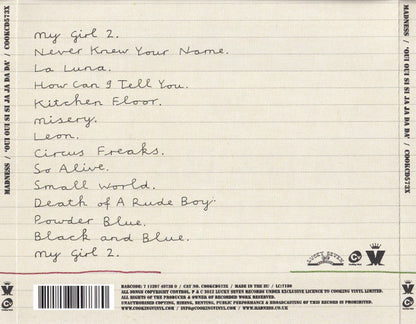 MADNESS / 'OUI OUI SI SI JA JA DA DA' / COOKCD573X
My Girl 2.
Never Knew Your Name.
La Luna.
How Can I Tell You.
Kitchen Floor.
Misery.
Leon.
Circus Freaks.
So Alive.
Small World.
Death of A Rude Boy.
Powder Blue.
Black and Blue.
My Girl 2.
LUCKY SEVEN
BARCODE: 7 11297 49738 0 / CAT NO. COOKCD573X / MADE IN THE EU / LC:7180
ALL SONGS COPYRIGHT CONTROL. P & © 2012 LUCKY SEVEN RECORDS UNDER EXCLUSIVE LICENCE TO COOKING VINYL LIMITED.
ALL RIGHTS OF THE PRODUCER & OWNER OF RECORDED WORK RESERVED.
UNAUTHORISED COPYING, HIRING, RENTING, PUBLIC PERFORMANCE & BROADCASTING OF THIS RECORD IS PROHIBITED.
WWW.COOKINGVINYL.COM / INFO@COOKINGVINYL.COM / WWW.MADNESS.CO.UK
MADNESS / 'OUI OUI SI SI JA JA DA DA' / COOKCD573X